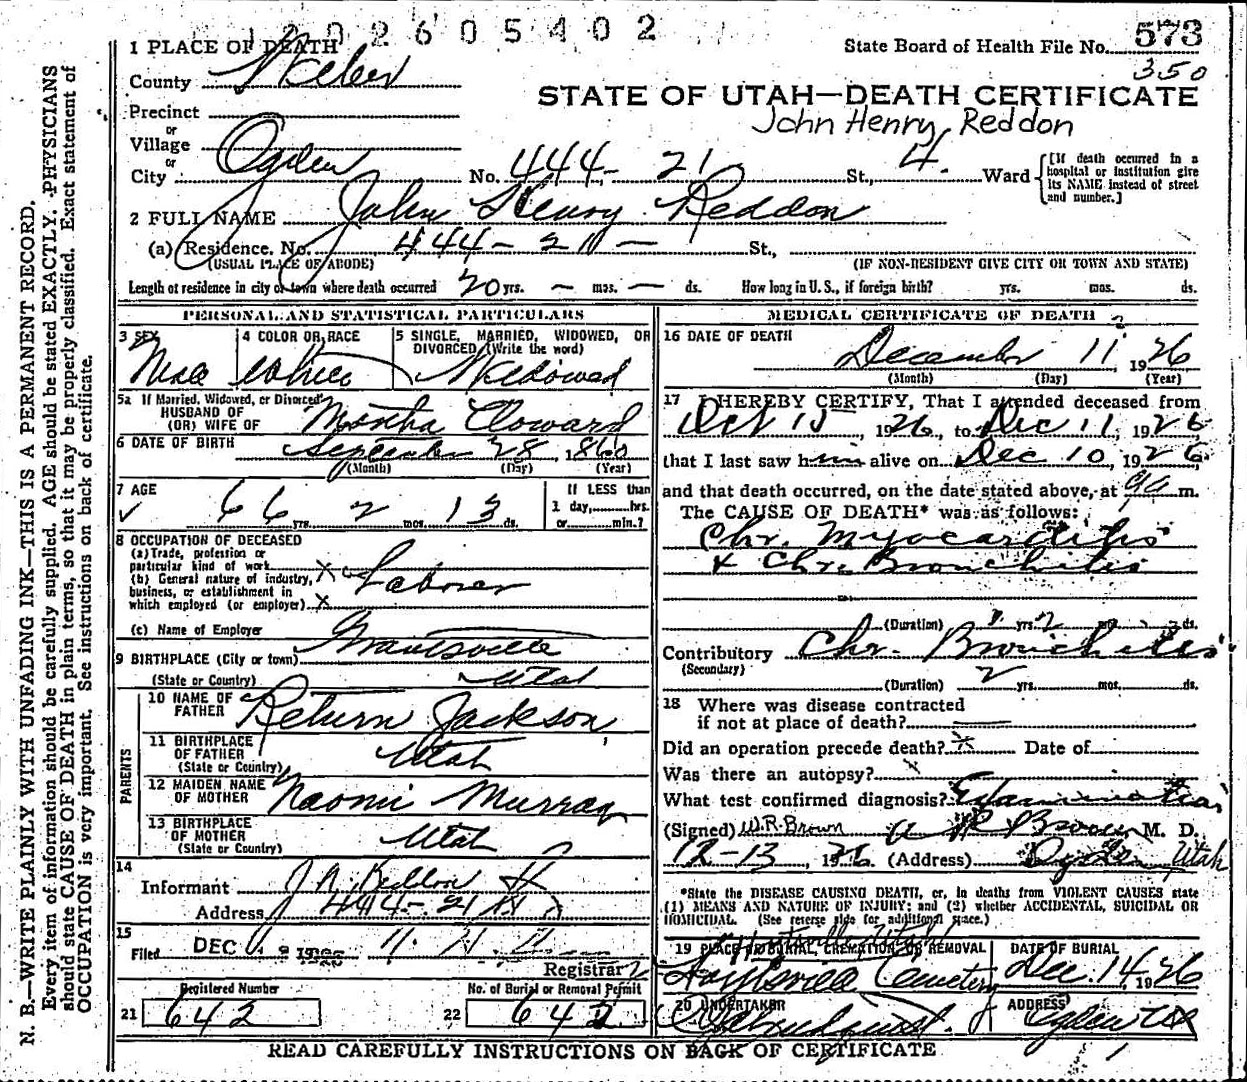 1 2 0 2 6 0 5 4 0 2
State Board of Health File No. 573
350
STATE OF UTAH—DEATH CERTIFICATE
John Henry Reddon
1 PLACE OF DEATH
County Weber
Precinct
or
Village
or
City Ogden No. 444- 21 St., 4. Ward
[If death occurred in a hospital or institution give its NAME instead of street and number.]
2 FULL NAME John Henry Reddon
(a) Residence. No. 444- 21 — St.,
(USUAL PLACE OF ABODE) (IF NON-RESIDENT GIVE CITY OR TOWN AND STATE)
Length of residence in city or town where death occurred 20 yrs. — mos. — ds. How long in U. S., if foreign birth? yrs. mos. ds.
PERSONAL AND STATISTICAL PARTICULARS
3 SEX Male
4 COLOR OR RACE White
5 SINGLE, MARRIED, WIDOWED, OR DIVORCED (Write the word) Widowed
5a If Married, Widowed, or Divorced
HUSBAND OF
(OR) WIFE OF Martha Cloward
6 DATE OF BIRTH September 28, 1860
(Month) (Day) (Year)
7 AGE 66 yrs. 2 mos. 13 ds.
If LESS than
1 day, hrs.
or min.?
8 OCCUPATION OF DECEASED
(a) Trade, profession or
particular kind of work X Laborer
(b) General nature of industry,
business, or establishment in
which employed (or employer) X
(c) Name of Employer
9 BIRTHPLACE (City or town) Grantsville
(State or Country) Utah
PARENTS
10 NAME OF FATHER Return Jackson
11 BIRTHPLACE OF FATHER
(State or Country) Utah
12 MAIDEN NAME OF MOTHER Naomi Murray
13 BIRTHPLACE OF MOTHER
(State or Country) Utah
14
Informant Reddon
Address 444- 21 St
15
Filed DEC
Registrar
Registered Number No. of Burial or Removal Permit
21 642 22 642
MEDICAL CERTIFICATE OF DEATH
16 DATE OF DEATH
December 11 1926
(Month) (Day) (Year)
17 I HEREBY CERTIFY, That I attended deceased from
Oct 15 1926, to Dec 11, 1926
that I last saw him alive on Dec 10, 1926,
and that death occurred, on the date stated above, at 9a m.
The CAUSE OF DEATH* was as follows:
Chr. Myocarditis
+ Chr. Bronchitis
(Duration) yrs. 2 mos. ds.
Contributory Chr. Bronchitis
(Secondary)
(Duration) 2 yrs. mos. ds.
18 Where was disease contracted
if not at place of death?
Did an operation precede death? x Date of
Was there an autopsy? x
What test confirmed diagnosis? Examination
(Signed) W.R. Brown W R Brown M. D.
12-13, 1926. (Address) Ogden Utah
*State the DISEASE CAUSING DEATH, or, in deaths from VIOLENT CAUSES state
(1) MEANS AND NATURE OF INJURY; and (2) whether ACCIDENTAL, SUICIDAL OR
HOMICIDAL. (See reverse side for additional space.)
19 PLACE OF BURIAL, CREMATION OR REMOVAL DATE OF BURIAL
Cemetery Dec. 14 1926
20 UNDERTAKER ADDRESS
Ogden
READ CAREFULLY INSTRUCTIONS ON BACK OF CERTIFICATE
N. B.—WRITE PLAINLY WITH UNFADING INK—THIS IS A PERMANENT RECORD.
Every item of information should be carefully supplied. AGE should be stated EXACTLY. PHYSICIANS
should state CAUSE OF DEATH in plain terms, so that it may be properly classified. Exact statement of
OCCUPATION is very important. See instructions on back of certificate.